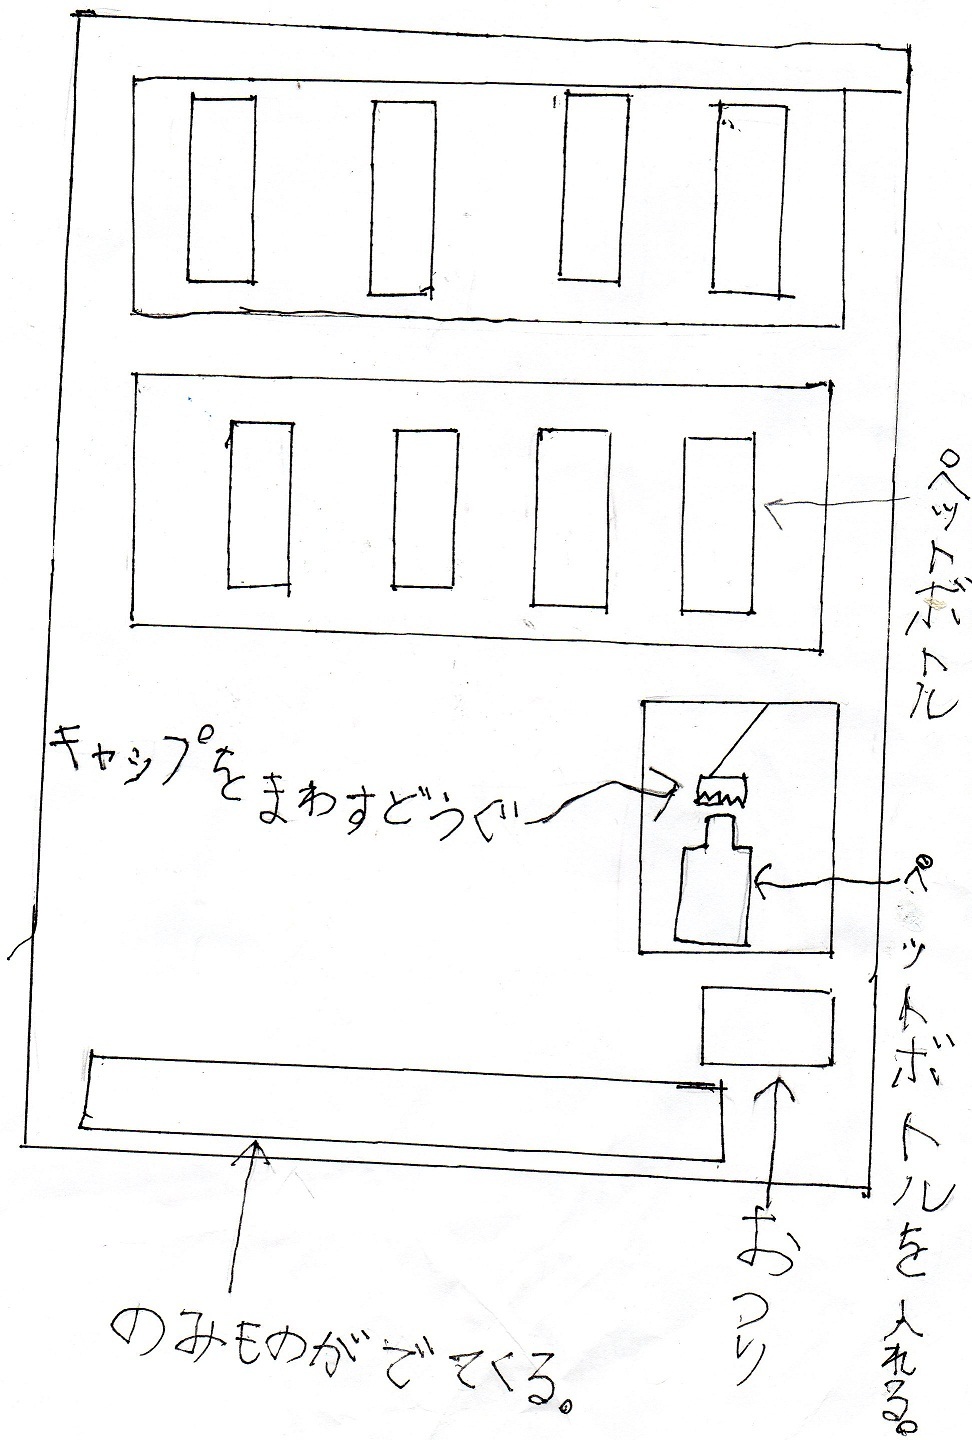 ペットボトル
キャップをまわすどうぐ
ペットボトルを入れる。
おつり
のみものがでてくる。